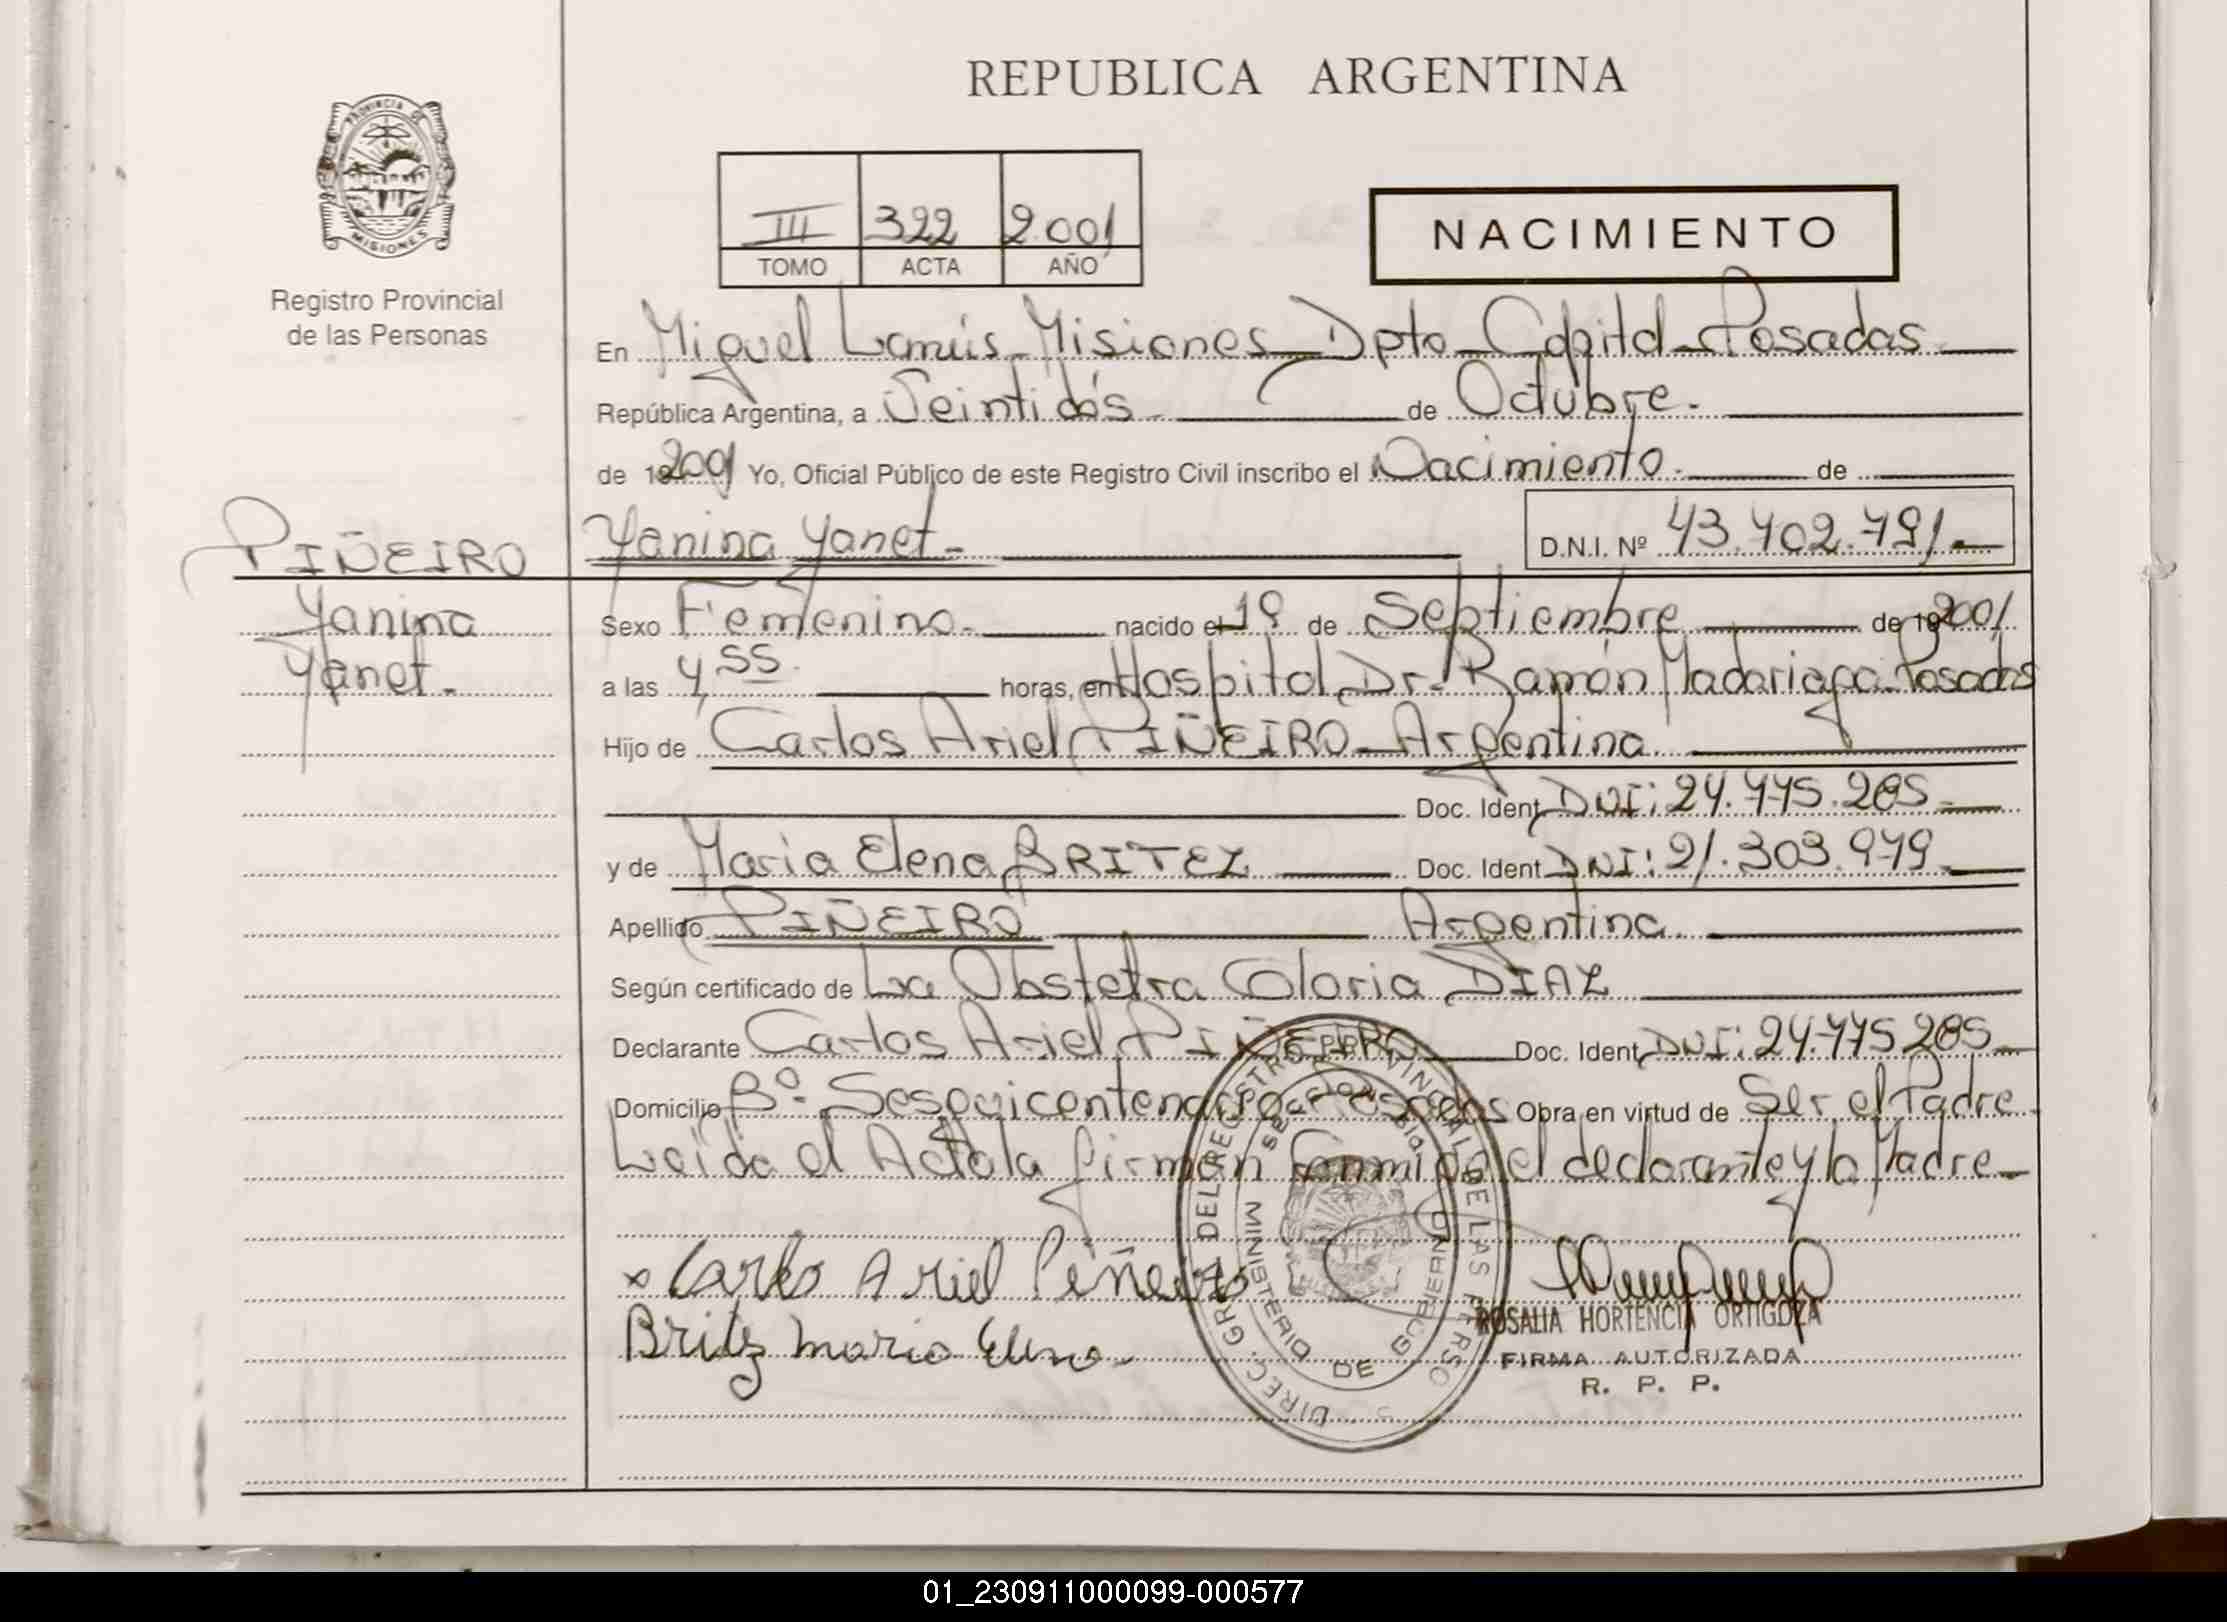 REPUBLICA ARGENTINA
PROVINCIA DE
MISIONES
Registro Provincial
de las Personas
III 322 2.001
TOMO ACTA AÑO
NACIMIENTO
En Miguel Lanús - Misiones - Dpto - Capital - Posadas
República Argentina, a Veintidós de Octubre.-
de 19 2001 Yo, Oficial Público de este Registro Civil inscribo el Nacimiento. de
PIÑEIRO Yanina Yanet - D.N.I. Nº 43.702.791.-
Yanina
Yanet.-
Sexo Femenino.- nacido el 19 de Septiembre de 19 2001
a las 4,55. horas, en Hospital Dr. Ramón Madariaga - Posadas
Hijo de Carlos Ariel PIÑEIRO - Argentina
Doc. Ident. DNI: 24.775.285 -
y de Maria Elena BRITEZ Doc. Ident. DNI: 21.303.979 -
Apellido PIÑEIRO Argentina.
Según certificado de La Obstetra Gloria DIAZ
Declarante Carlos Ariel PIÑEIRO Doc. Ident. DNI: 24.775 285 -
Domicilio Bº. Sesquicentenario - Posadas Obra en virtud de Ser el Padre.
Leída el Acta la firman Conmigo el declarante y la Madre -
x Carlos Ariel Piñeiro
Britez maria Elena -
DIREC. GRAL DEL REGISTRO PROVINCIAL DE LAS PERSO
MINISTERIO DE GOBIERNO
ROSALIA HORTENCIA ORTIGOZA
FIRMA AUTORIZADA
R. P. P.
01_230911000099-000577